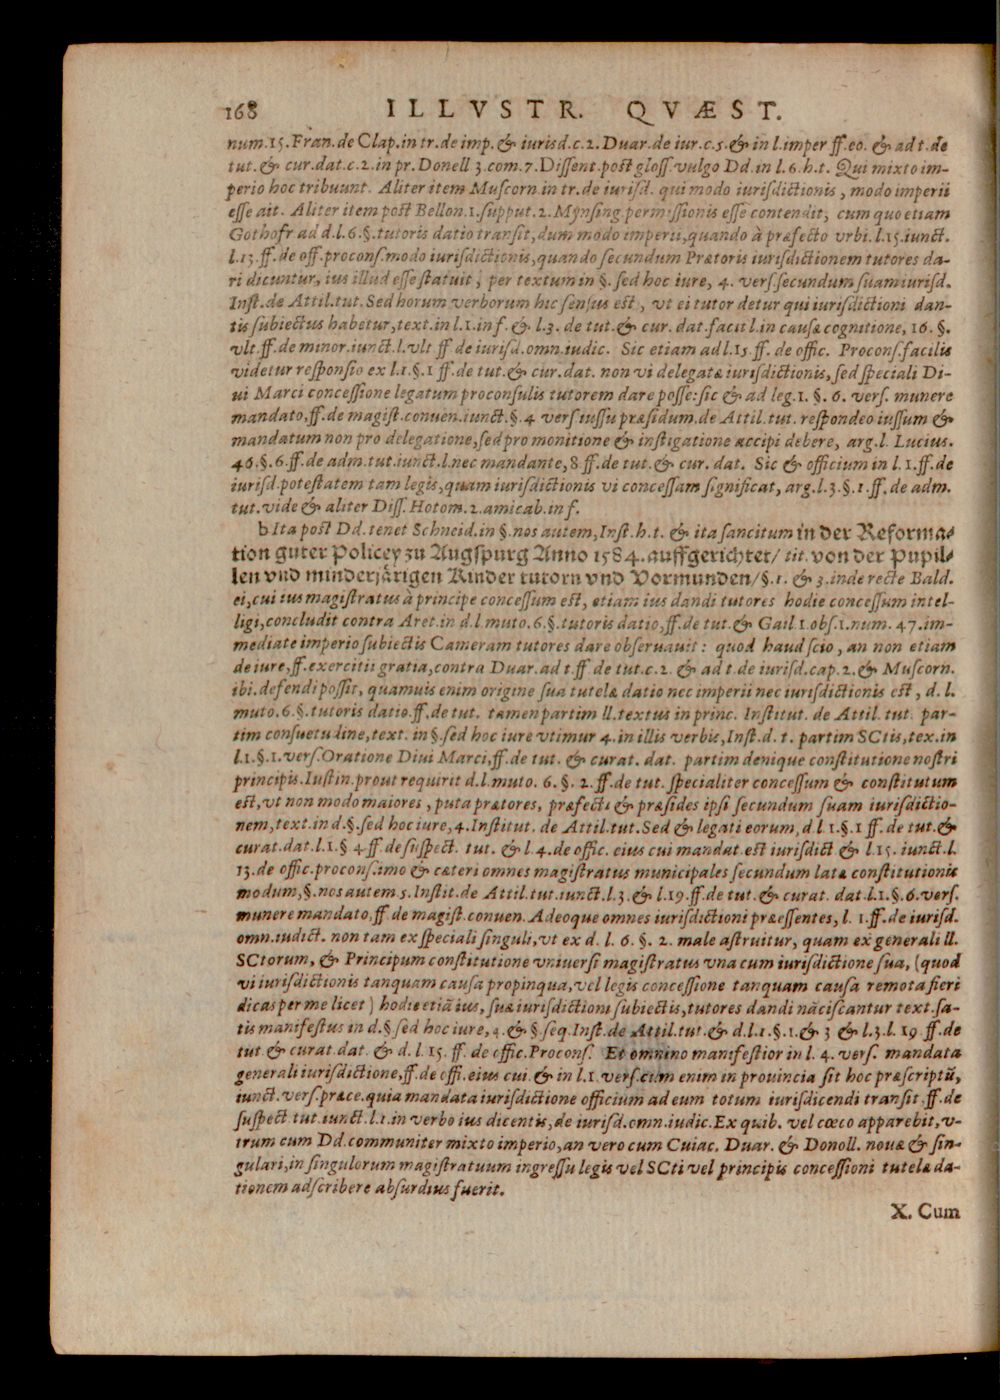 168 ILLVSTR. QVÆST.
num.15.Fran.de Clap.in tr.de imp.& iurisd.c.2.Duar.de iur.c.5.& in l.imper ff.eo.& ad t.de
tut.& cur.dat.c.2.in pr.Donell 3.com.7.Dissent.post gloss.vulgo Dd.in l.6.h.t. Qui mixto im-
perio hoc tribuunt. Aliter item Muscorn.in tr.de iurisd. qui modo iurisdictionis, modo imperii
esse ait. Aliter item post Bellon.1.supput.2.Mynsing permissionis esse contendit, cum quo etiam
Gothofr ad d.l.6.§.tutoris datio transit,dum modo imperii,quando à præfecto vrbi.l.15.iunct.
l.13.ff.de off.procons.modo iurisdictionis,quando secundum Prætoris iurisdictionem tutores da-
ri dicuntur, ius illud esse statuit, per textum in §.sed hoc iure, 4. vers.secundum suam iurisd.
Inst.de Attil.tut.Sed horum verborum hic sensus est, vt ei tutor detur qui iurisdictioni dan-
tis subiectus habetur,text.in l.1.in f.& l.3. de tut.& cur. dat.facit l.in causæ cognitione, 16. §.
vlt.ff.de minor.iunct.l.vlt ff de iurisd.omn.iudic. Sic etiam ad l.15.ff. de offic. Procons.facilis
videtur responsio ex l.1.§.1 ff.de tut.& cur.dat. non vi delegatæ iurisdictionis,sed speciali Di-
ui Marci concessione legatum proconsulis tutorem dare posse: sic & ad leg.1. §. 6. vers. munere
mandato,ff.de magist.conuen.iunct.§.4 vers iussu præsidum.de Attil.tut. respondeo iussum &
mandatum non pro delegatione,sed pro monitione & instigatione accipi debere, arg.l. Lucius.
46.§.6.ff.de adm.tut.iunct.l.nec mandante,8.ff.de tut.& cur. dat. Sic & officium in l.1.ff.de
iurisd.potestatem tam legis,quam iurisdictionis vi concessam significat, arg.l.3.§.1.ff.de adm.
tut.vide & aliter Diss.Hotom.2.amicab.in f.
b Ita post Dd.tenet Schneid.in §.nos autem,Inst.h.t. & ita sancitum in der Reforma-
tion guter Policey zu Augspurg Anno 1584.auffgerichtet/ tit. von der Pupil-
len vnd minderjärigen Kinder tutorn vnd Vormunden/§.1. & 3.inde recte Bald.
ei,cui ius magistratus à principe concessum est, etiam ius dandi tutores hodie concessum intel-
ligi,concludit contra Aret.in d.l.muto.6.§.tutoris datio,ff.de tut.& Gail.1.obs.1.num. 47.im-
mediate imperio subiectis Cameram tutores dare obseruauit: quod haud scio, an non etiam
de iure,ff.exercitii gratia,contra Duar.ad t.ff de tut.c.2. & ad t.de iurisd.cap.2.& Muscorn.
ibi.defendi possit, quamuis enim origine sua tutelæ datio nec imperii nec iurisdictionis est, d. l.
muto.6.§.tutoris datio.ff.de tut. tamen partim ll.textus in princ. Institut. de Attil.tut. par-
tim consuetudine,text. in §.sed hoc iure vtimur 4.in illis verbis,Inst.d. t. partim SCtis,tex.in
l.1.§.1.vers.Oratione Diui Marci,ff.de tut. & curat. dat. partim denique constitutione nostri
principis.Iustin.prout requirit d.l.muto. 6. §. 2. ff.de tut. specialiter concessum & constitutum
est,vt non modo maiores, puta prætores, præfecti & præsides ipsi secundum suam iurisdictio-
nem,text.in d.§.sed hoc iure,4.Institut. de Attil.tut.Sed & legati eorum,d.l 1.§.1 ff.de tut.&
curat.dat.l.1.§ 4.ff.de suspect. tut. & l.4.de offic. eius cui mandat.est iurisdict & l.15. iunct.l.
13.de offic.procons.imo & cæteri omnes magistratus municipales secundum latæ constitutionis
modum,§.nos autem 5.Instit.de Attil.tut.iunct.l.3.& l.19.ff.de tut.& curat. dat.l.1.§.6.vers.
munere mandato,ff.de magist.conuen.Adeoque omnes iurisdictioni præessentes, l. 1.ff.de iurisd.
omn.iudict. non tam ex speciali singuli,vt ex d. l. 6. §. 2. male astruitur, quam ex generali ll.
SCtorum, & Principum constitutione vniuersi magistratus vna cum iurisdictione sua, (quod
vi iurisdictionis tanquam causa propinqua,vel legis concessione tanquam causa remota fieri
dicas per me licet) hodie etiã ius, suæ iurisdictioni subiectis,tutores dandi nãciscantur text.sa-
tis manifestus in d.§.sed hoc iure,4.& §.seq.Inst.de Attil.tut.& d.l.1.§.1.& 3 & l.3.l. 19.ff.de
tut.& curat.dat. & d. l.15. ff. de offic.Procons. Et omnino manifestior in l. 4. vers. mandata
generali iurisdictione,ff.de offi.eius cui.& in l.1.vers.cum enim in prouincia sit hoc præscriptũ,
iunct.vers.præce.quia mandata iurisdictione officium ad eum totum iurisdicendi transit.ff.de
suspect tut.iunct.l.1.in verbo ius dicentis,de iurisd.omn.iudic.Ex quib. vel cœco apparebit,v-
trum cum Dd.communiter mixto imperio,an vero cum Cuiac. Duar. & Donoll. nouæ & sin-
gulari,in singulorum magistratuum ingressu legis vel SCti vel principis concessioni tutelæ da-
tionem adscribere absurdius fuerit.
X. Cum